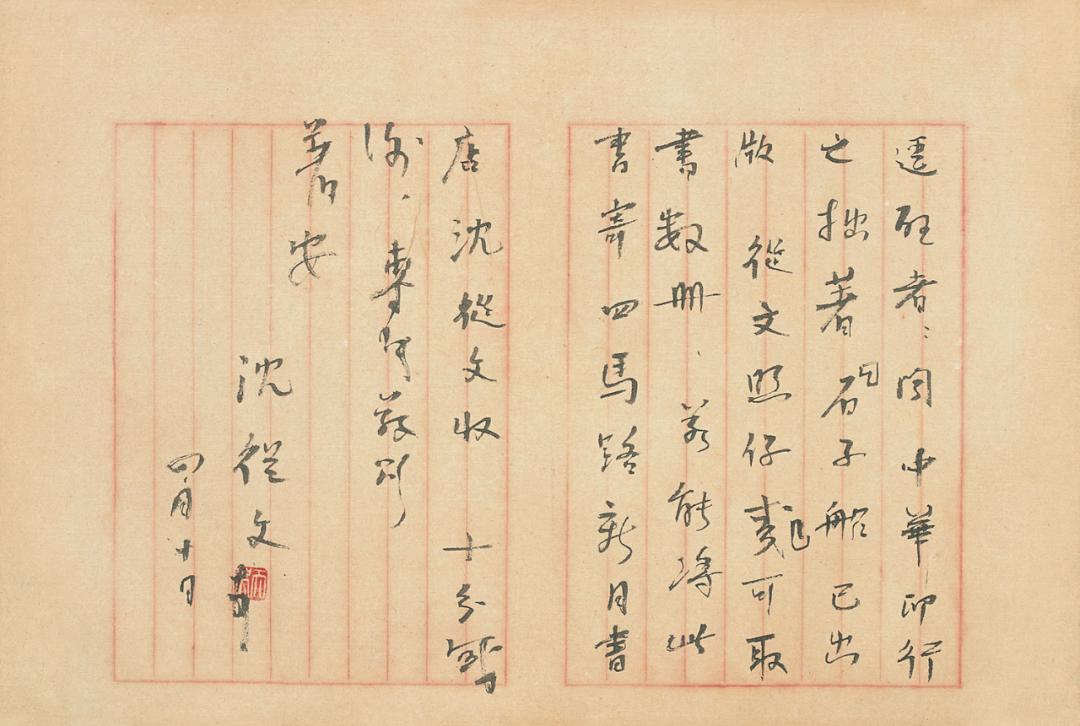 迁硅者：闻中華印行
之拙著石子船已出
版 從文照例可取
書數册、若能將此
書寄四馬路新月書
店沈從文收 十分感
谢、專此敬頌
著安
沈從文
四月十日